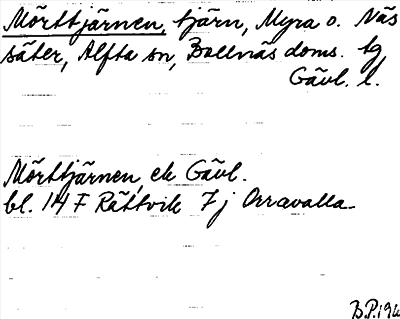 Mörttjärnen, tjärn, Myra o. Näs
säter, Alfta sn, Bollnäs doms. lg
Gävl. l.
Mörttjärnen, ek Gävl.
bl. 14 F Rättvik 7j Orravalla
B.P. 196